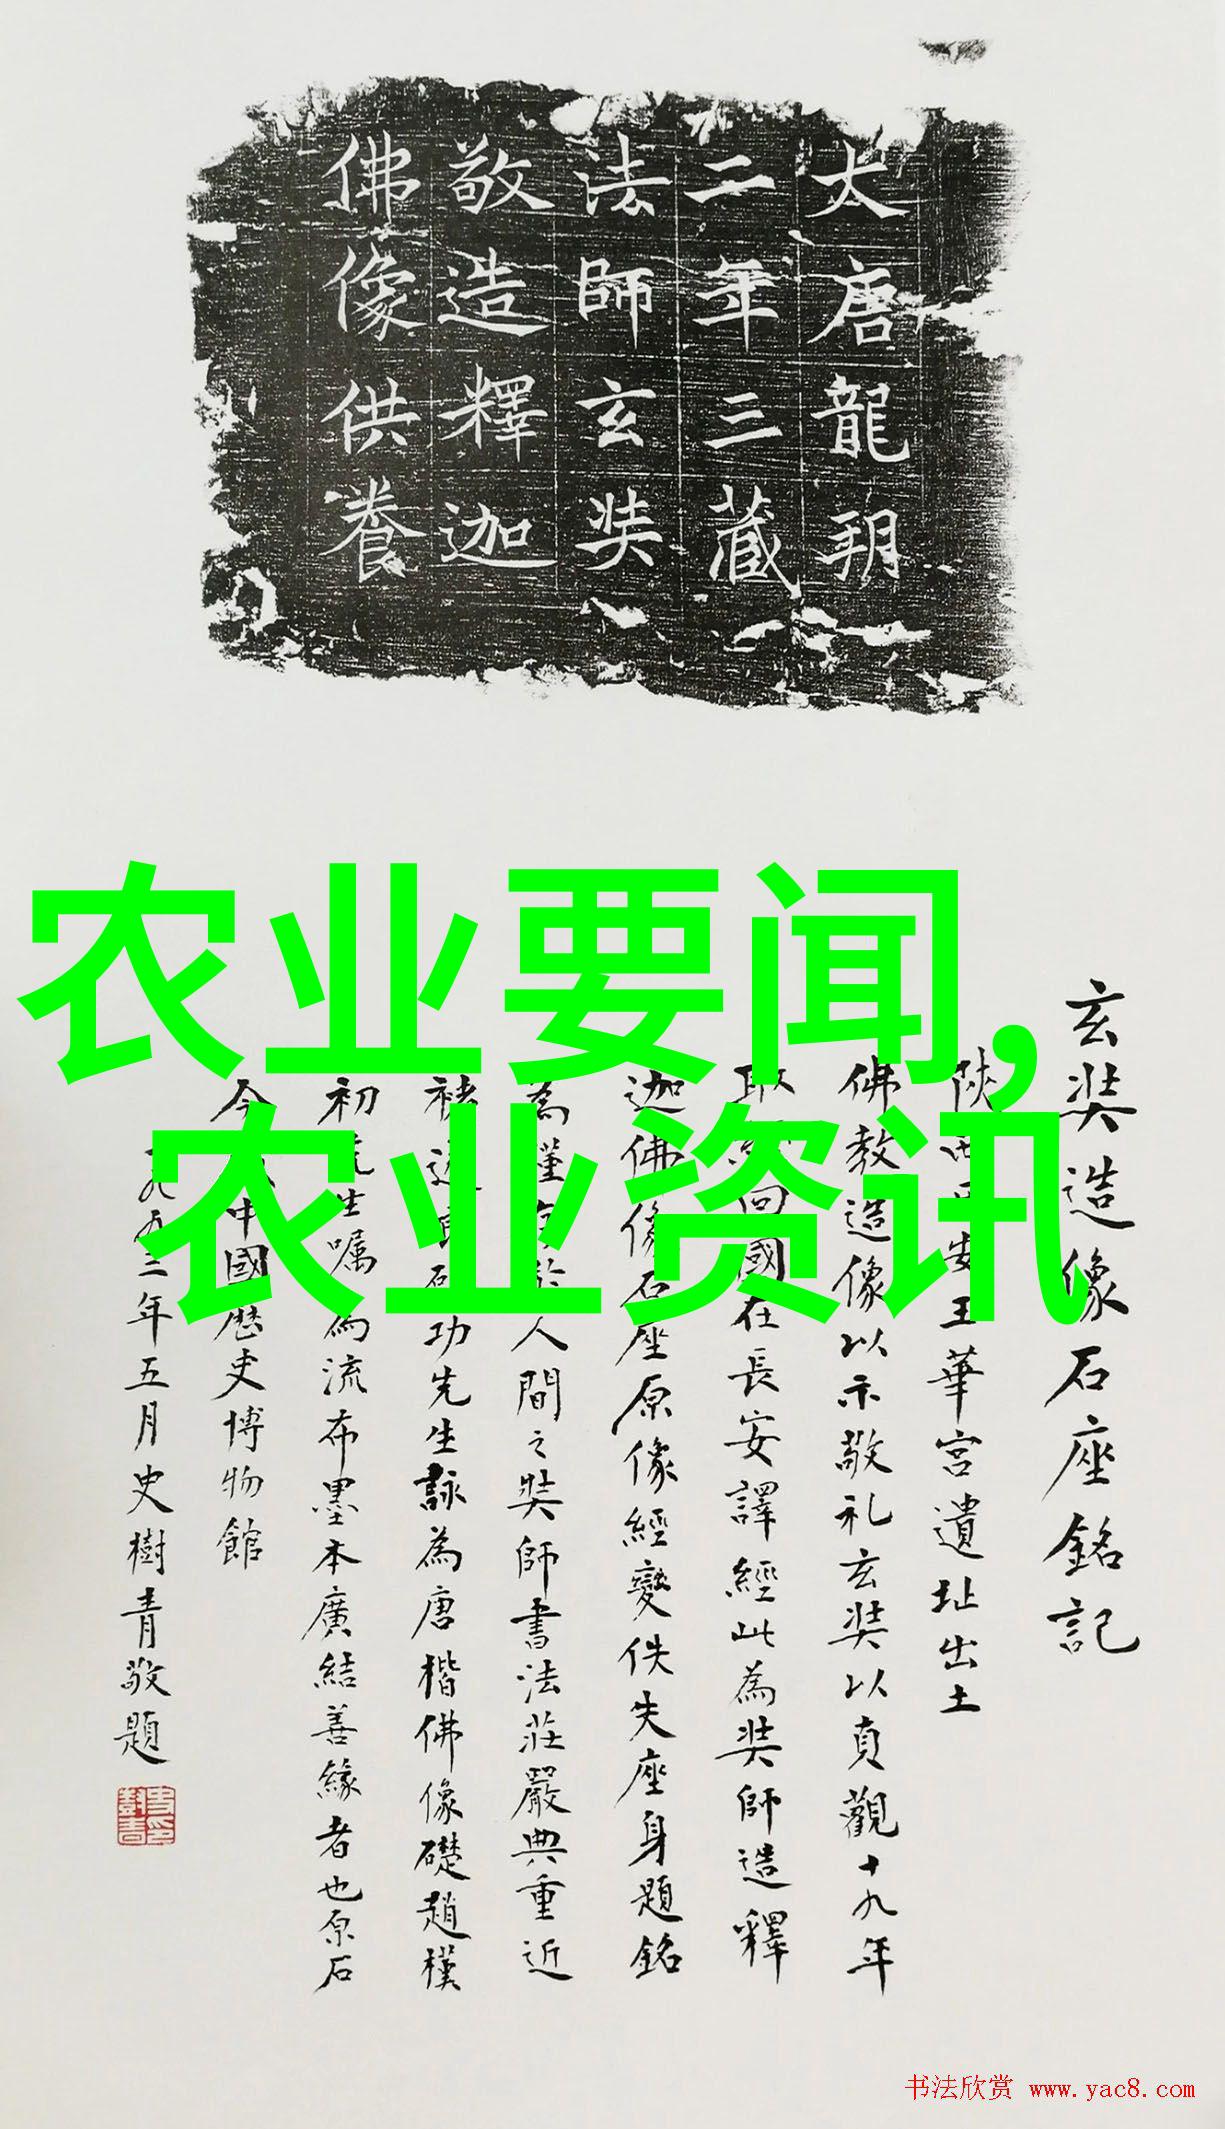 大唐龍朔
二年三藏
法師玄奘
敬造釋迦
佛像供養
农业要闻,
农业资讯
玄奘造像石座銘記
陝西 王華宮遺址出土
佛教造像以示敬礼玄奘以貞觀十九年
取 回國在長安譯經此為奘師造釋
迦佛像石座原像經變佚失座身題銘
為僅 人間之奘師書法莊嚴典重近
褚 功先生詠為唐楷佛像礎趙樸
初 生嘱為流布墨本廣結善緣者也原石
今 中國歷史博物館
一九九三年五月史樹青敬題
书法欣赏 www.yac8.com